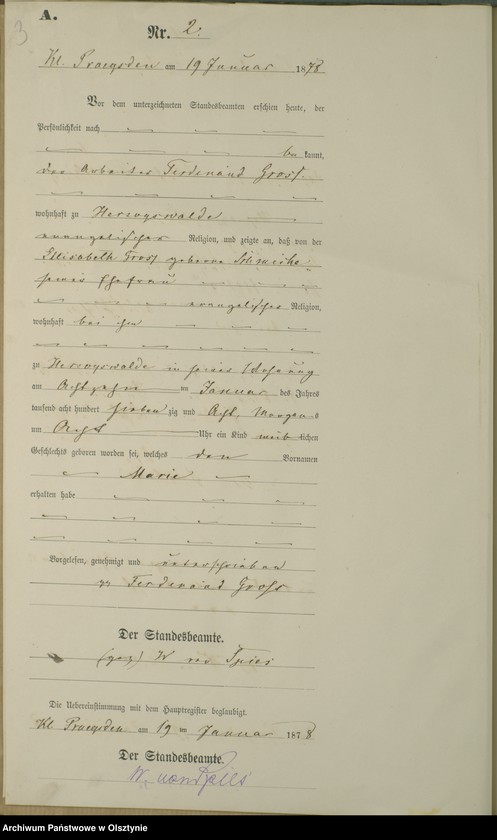 3
A.
Nr. 2.
Kl. am 19 Januar 1878
Vor dem unterzeichneten Standesbeamten erschien heute, der
Persönlichkeit nach
be kannt,
der Arbeiter Ferdinand Gross.
wohnhaft zu Herzogswalde
evangelischer Religion, und zeigte an, daß von der
Elisabeth Gross geborene
seiner Ehefrau
evangelischer Religion,
wohnhaft bei ihm
zu Herzogswalde in seiner Wohnung
am Achtzehn ten Januar des Jahres
tausend acht hundert sieben zig und Acht, Morgens
um Acht Uhr ein Kind weib lichen
Geschlechts geboren worden sei, welches den Vornamen
Marie
erhalten habe
Vorgelesen, genehmigt und unterschrieben
Ferdinand Gross
Der Standesbeamte.
(gez) W von
Die Uebereinstimmung mit dem Hauptregister beglaubigt.
Kl am 19 ten Januar 1878
Der Standesbeamte.
W. von
Archiwum Państwowe w Olsztynie